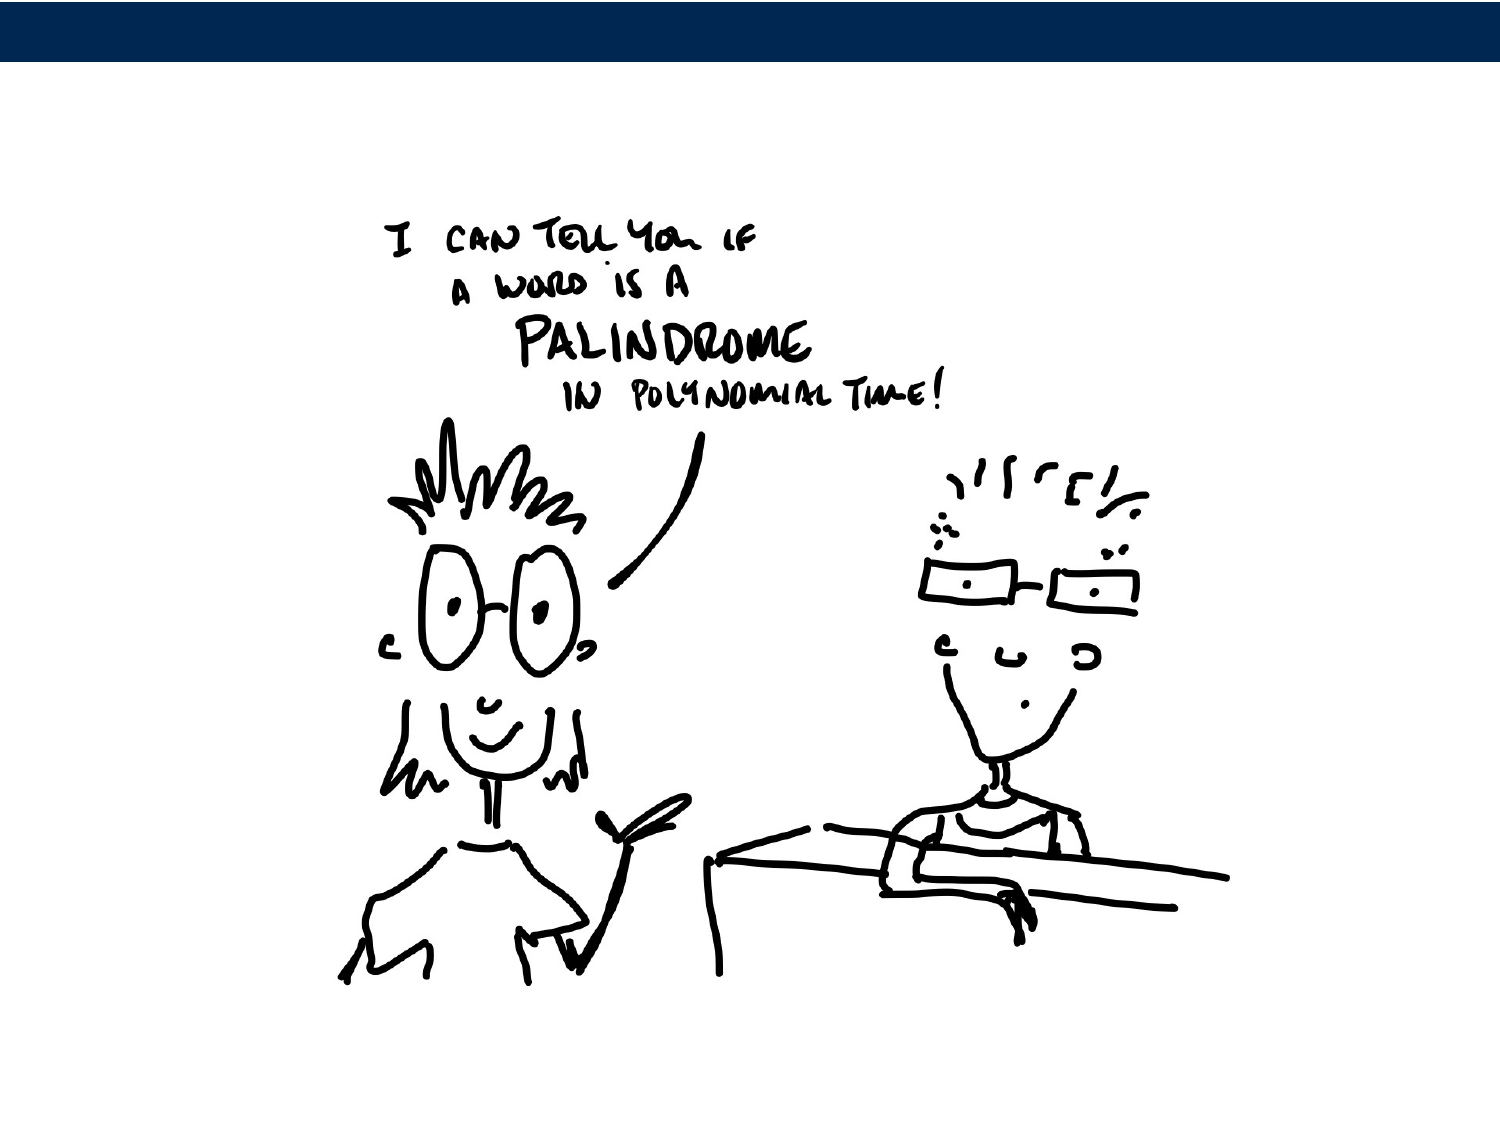 I CAN TELL YOU IF
A WORD IS A
PALINDROME
IN POLYNOMIAL TIME!